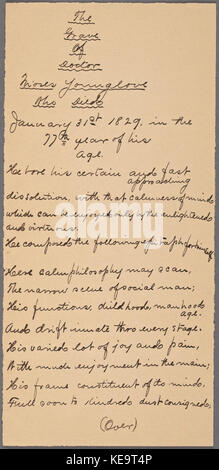 The
Grave
Of
Doctor
Moses Younglove
Who Died
January 31st 1829. in the
77th year of his
Age.
He bore his certain and fast
approaching
dissolution, with that calmness of mind
which can be enjoyed only by the enlightened
and virtuous.
He composed the following epitaph for himself.
Here calm philosophy may scan,
The narrow scene of social man;
His functions, childhood, manhood
age.
And drift innate thro every stage.
His varied lot of joy and pain,
With much enjoyment in the main;
His frame constituent of its mind,
Full soon to kindred dust consigned,
(Over)
alamy
Image ID: KE9T4P
www.alamy.com